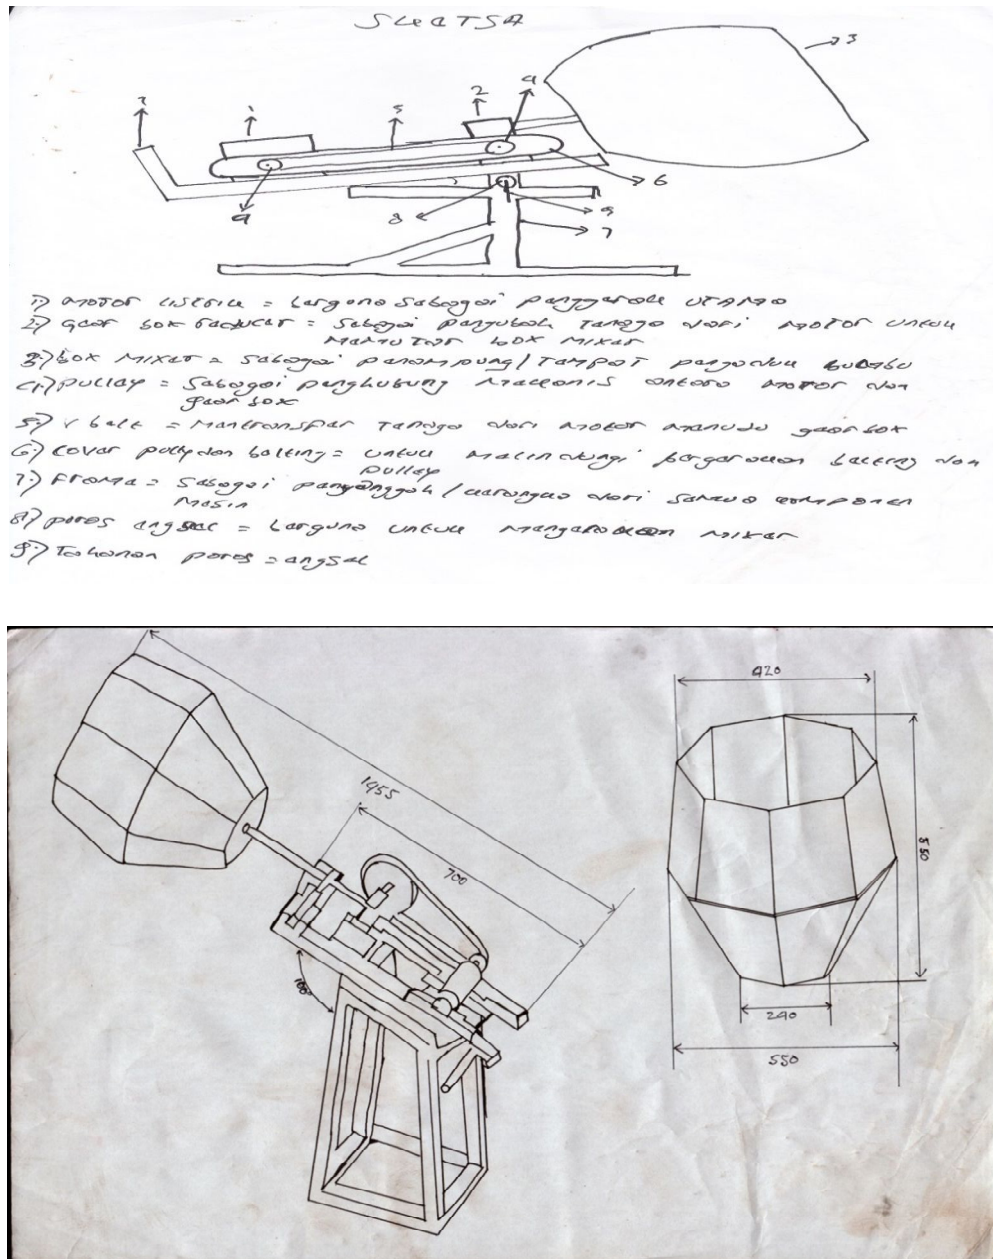 SKETSA
3
4
2
5
1
7
6
9
8
9
7
1.) MOTOR LISTRIK = berguna sebagai penggerak UTAMA
2.) gear box reducer = sebagai pengubah Tenaga dari MOTOR untuk
MEMUTAR box MIXER
3.) box MIXER = sebagai penampung / TEMPAT pengaduk bumbu
4.) pulley = sebagai penghubung Mekanis antara MOTOR dan
gear box
5.) V belt = Mentransfer Tenaga dari MOTOR MENUJU gearbox
6.) cover pully dan belting = untuk Melindungi pergerakan belting dan
pulley
7.) Frame = sebagai penyanggah / kerangka dari semua componen
Mesin
8.) poros engsel = berguna untuk Mengarahkan MIXER
9.) Tahanan poros = engsel
1455
700
100°
420
550
240
550